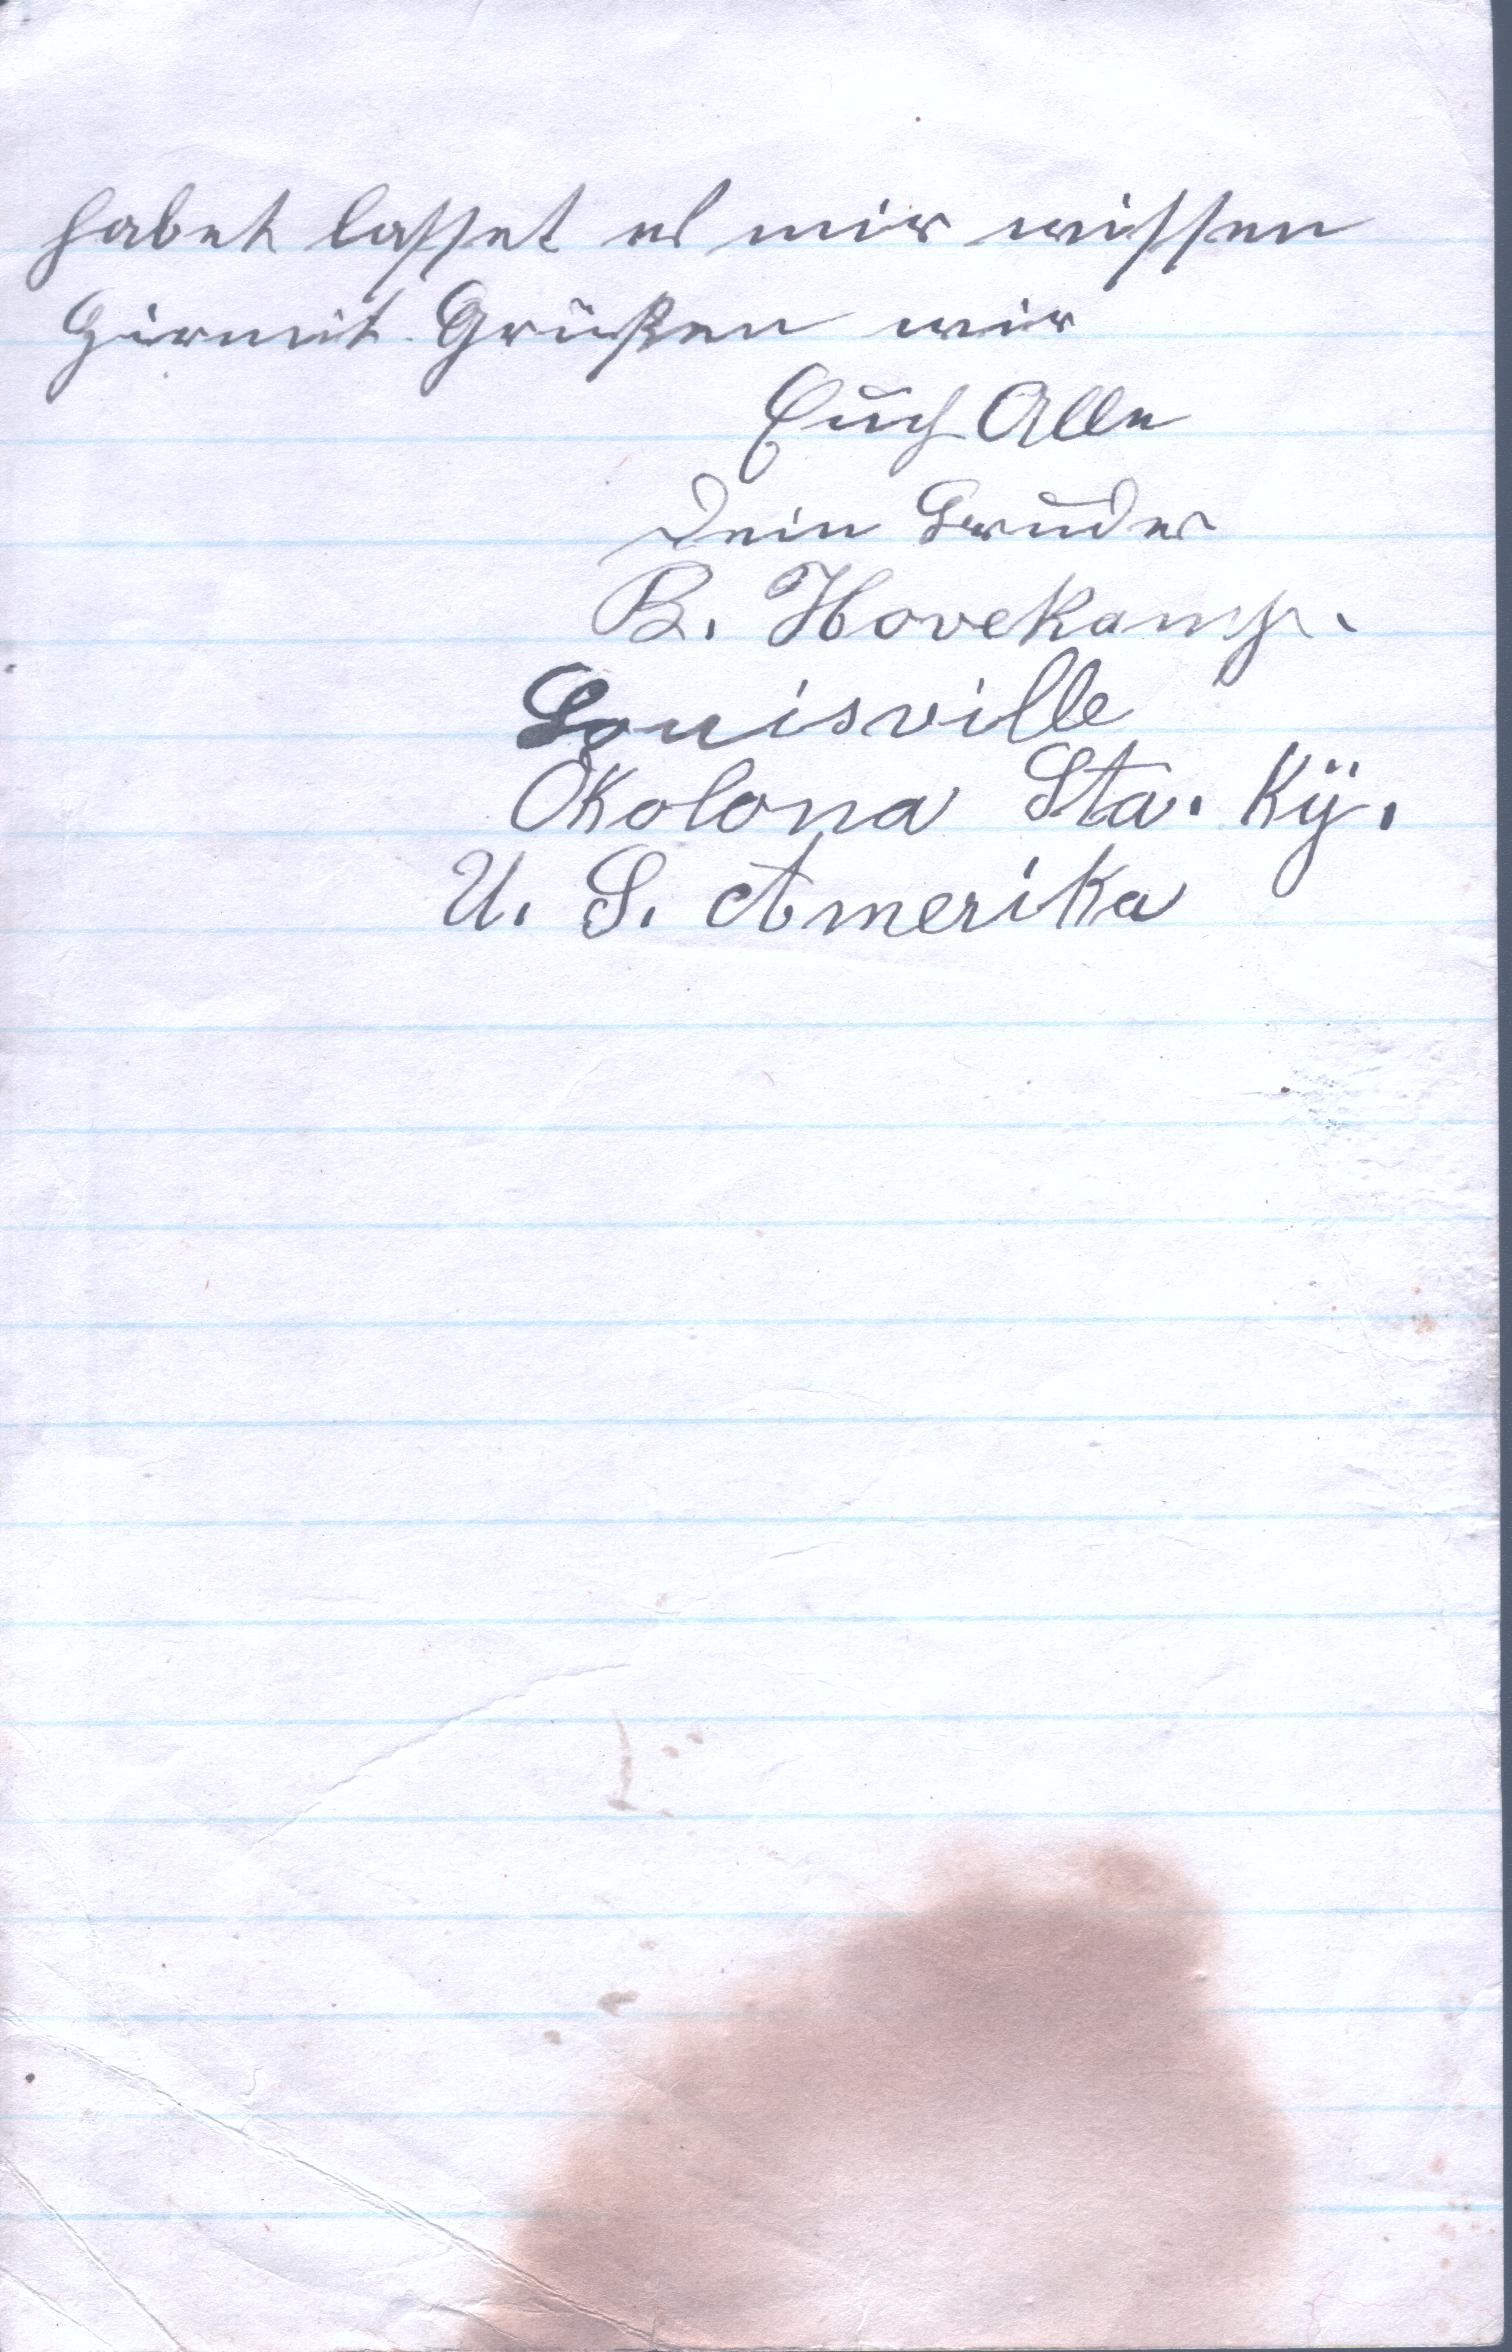 habet lasset es mir wissen
Hirmit Grüßen wir
Euch Alle
Dein Bruder
B. Hovekamp.
Louisville
Okolona Sta. Kÿ.
U. S. Amerika